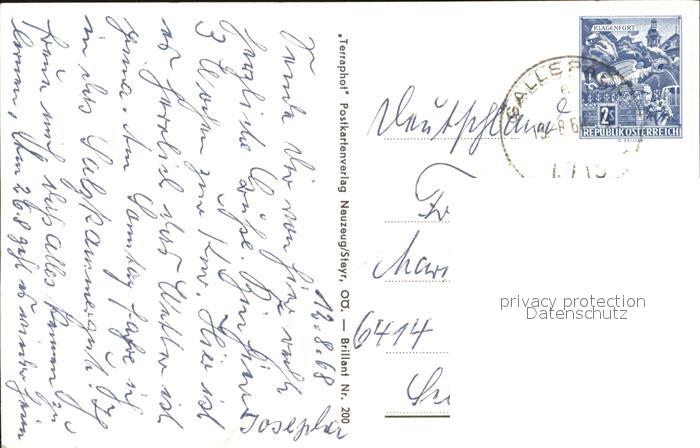 12.8.68
Sende Dir von hier recht
herzliche Grüße. Bin hier
3 Wochen zur Kur. Hier ist
es herrlich das Wetter ist
prima. Am Samstag fahre ich
in das Salzkammergut. Ich
freue mich das alles kennen zu
lernen. Am 26.8 geht es wieder heim
Josepha
"Terraphot" Postkartenverlag Neuzeug/Steyr, OÖ. — Brillant Nr. 200
KLAGENFURT
2S
REPUBLIK ÖSTERREICH
GALLSPACH
Deutschland
6414
privacy protection
Datenschutz